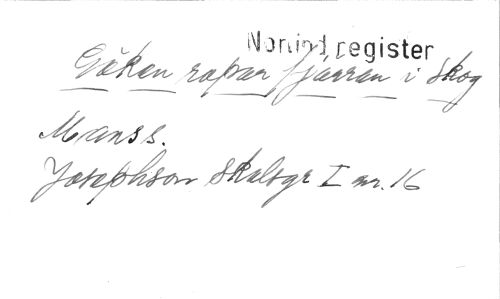 Nomind register
Göken ropar fjärran i skog
Manss.
Josephson Skaldgr I nr. 16